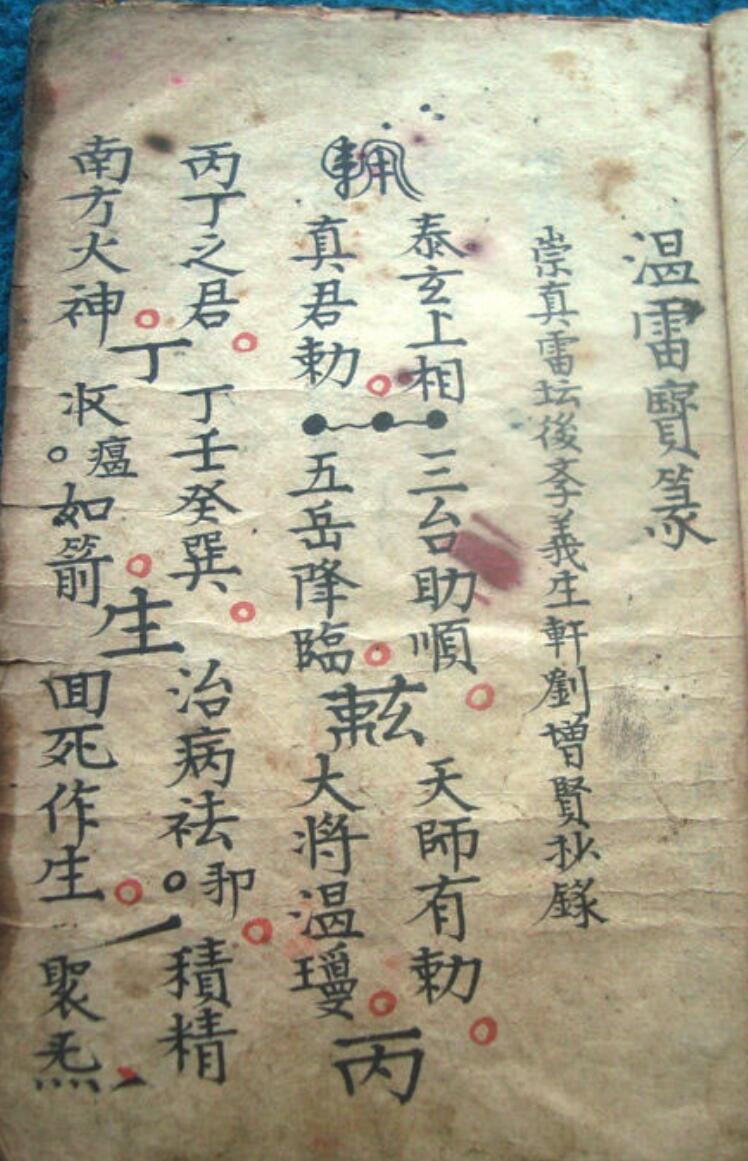 温雷寶篆
崇真雷坛後斈義生軒劉增賢抄錄
泰玄上相
真君勅
三台助順
五岳降臨
天師有勅
大将温瓊
丙
丙丁之君
南方火神
丁
丁壬癸巽
收瘟如箭
生
治病袪邪
回死作生
積精
聚炁